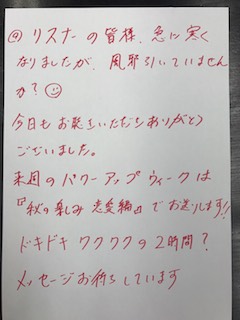 @ リスナーの皆様、急に寒く
なりましたが、風邪引いていません
か?☺
今日もお聴きいただきありがとう
ございました。
来週のパワーアップウィークは
『秋の楽しみ 恋愛編』でお送りします!!
ドキドキワクワクの2時間?
メッセージお待ちしています